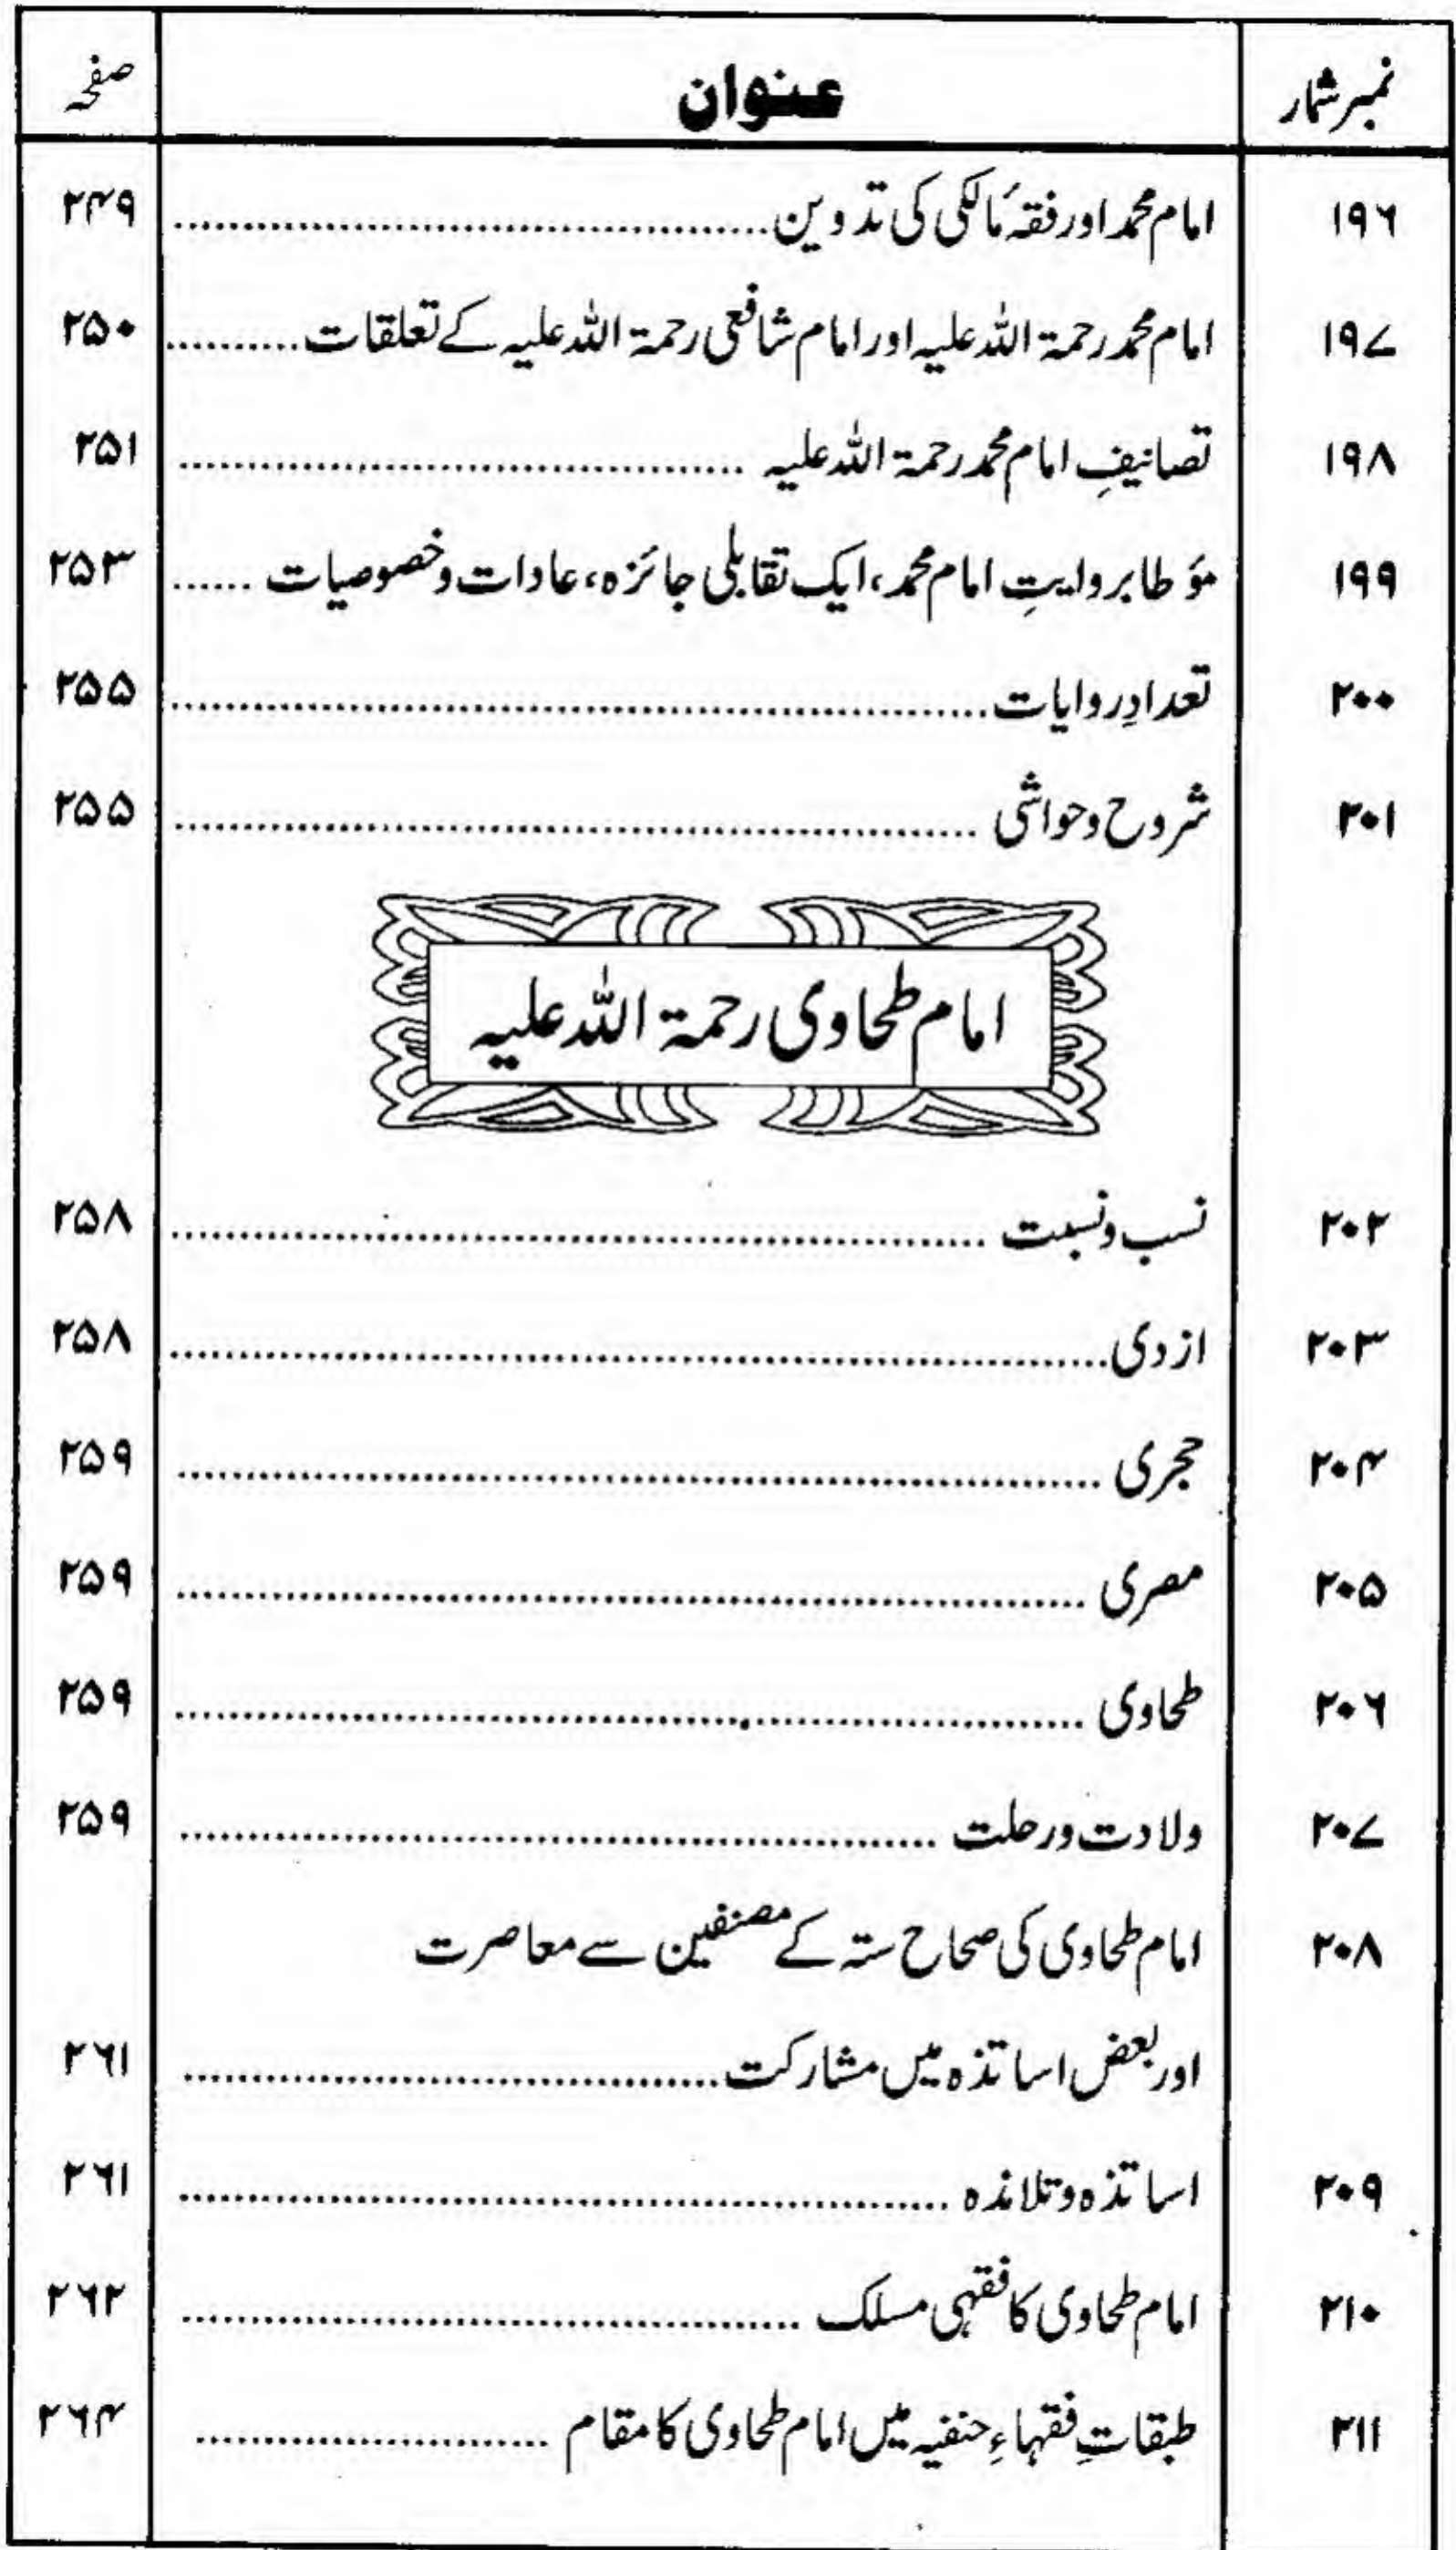 نمبر شمار عنوان صفحہ
۱۹۶ امام محمد اور فقہ مالکی کی تدوین................................ ۲۴۹
۱۹۷ امام محمد رحمۃ اللہ علیہ اور امام شافعی رحمۃ اللہ علیہ کے تعلقات.......... ۲۵۰
۱۹۸ تصانیفِ امام محمد رحمۃ اللہ علیہ ................................ ۲۵۱
۱۹۹ مؤطا بروایتِ امام محمد، ایک تقابلی جائزہ، عادات وخصوصیات ...... ۲۵۳
۲۰۰ تعدادِ روایات................................ ۲۵۵
۲۰۱ شروح وحواشی ................................ ۲۵۵
امام طحاوی رحمۃ اللہ علیہ
۲۰۲ نسب ونسبت ................................ ۲۵۸
۲۰۳ ازدی................................ ۲۵۸
۲۰۴ حجری ................................ ۲۵۹
۲۰۵ مصری ................................ ۲۵۹
۲۰۶ طحاوی ................................ ۲۵۹
۲۰۷ ولادت ورحلت ................................ ۲۵۹
۲۰۸ امام طحاوی کی صحاح ستہ کے مصنفین سے معاصرت
اور بعض اساتذہ میں مشارکت................................ ۲۶۱
۲۰۹ اساتذہ وتلامذہ ................................ ۲۶۱
۲۱۰ امام طحاوی کا فقہی مسلک ................................ ۲۶۲
۲۱۱ طبقاتِ فقہاءِ حنفیہ میں امام طحاوی کا مقام .......................... ۲۶۴